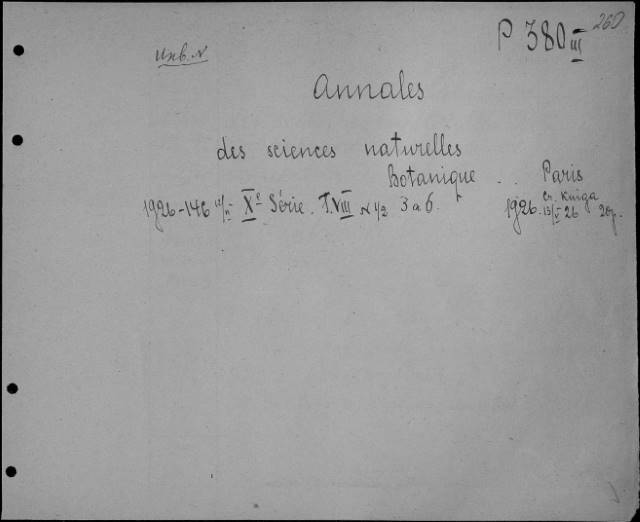 260
P 380 III
Инв. N
Annales
des sciences naturelles
Botanique . . Paris
1926-146 Xe Série. T.VIII N 1/2 3 a 6. 1926.
Cr. Kniga
13/V 26